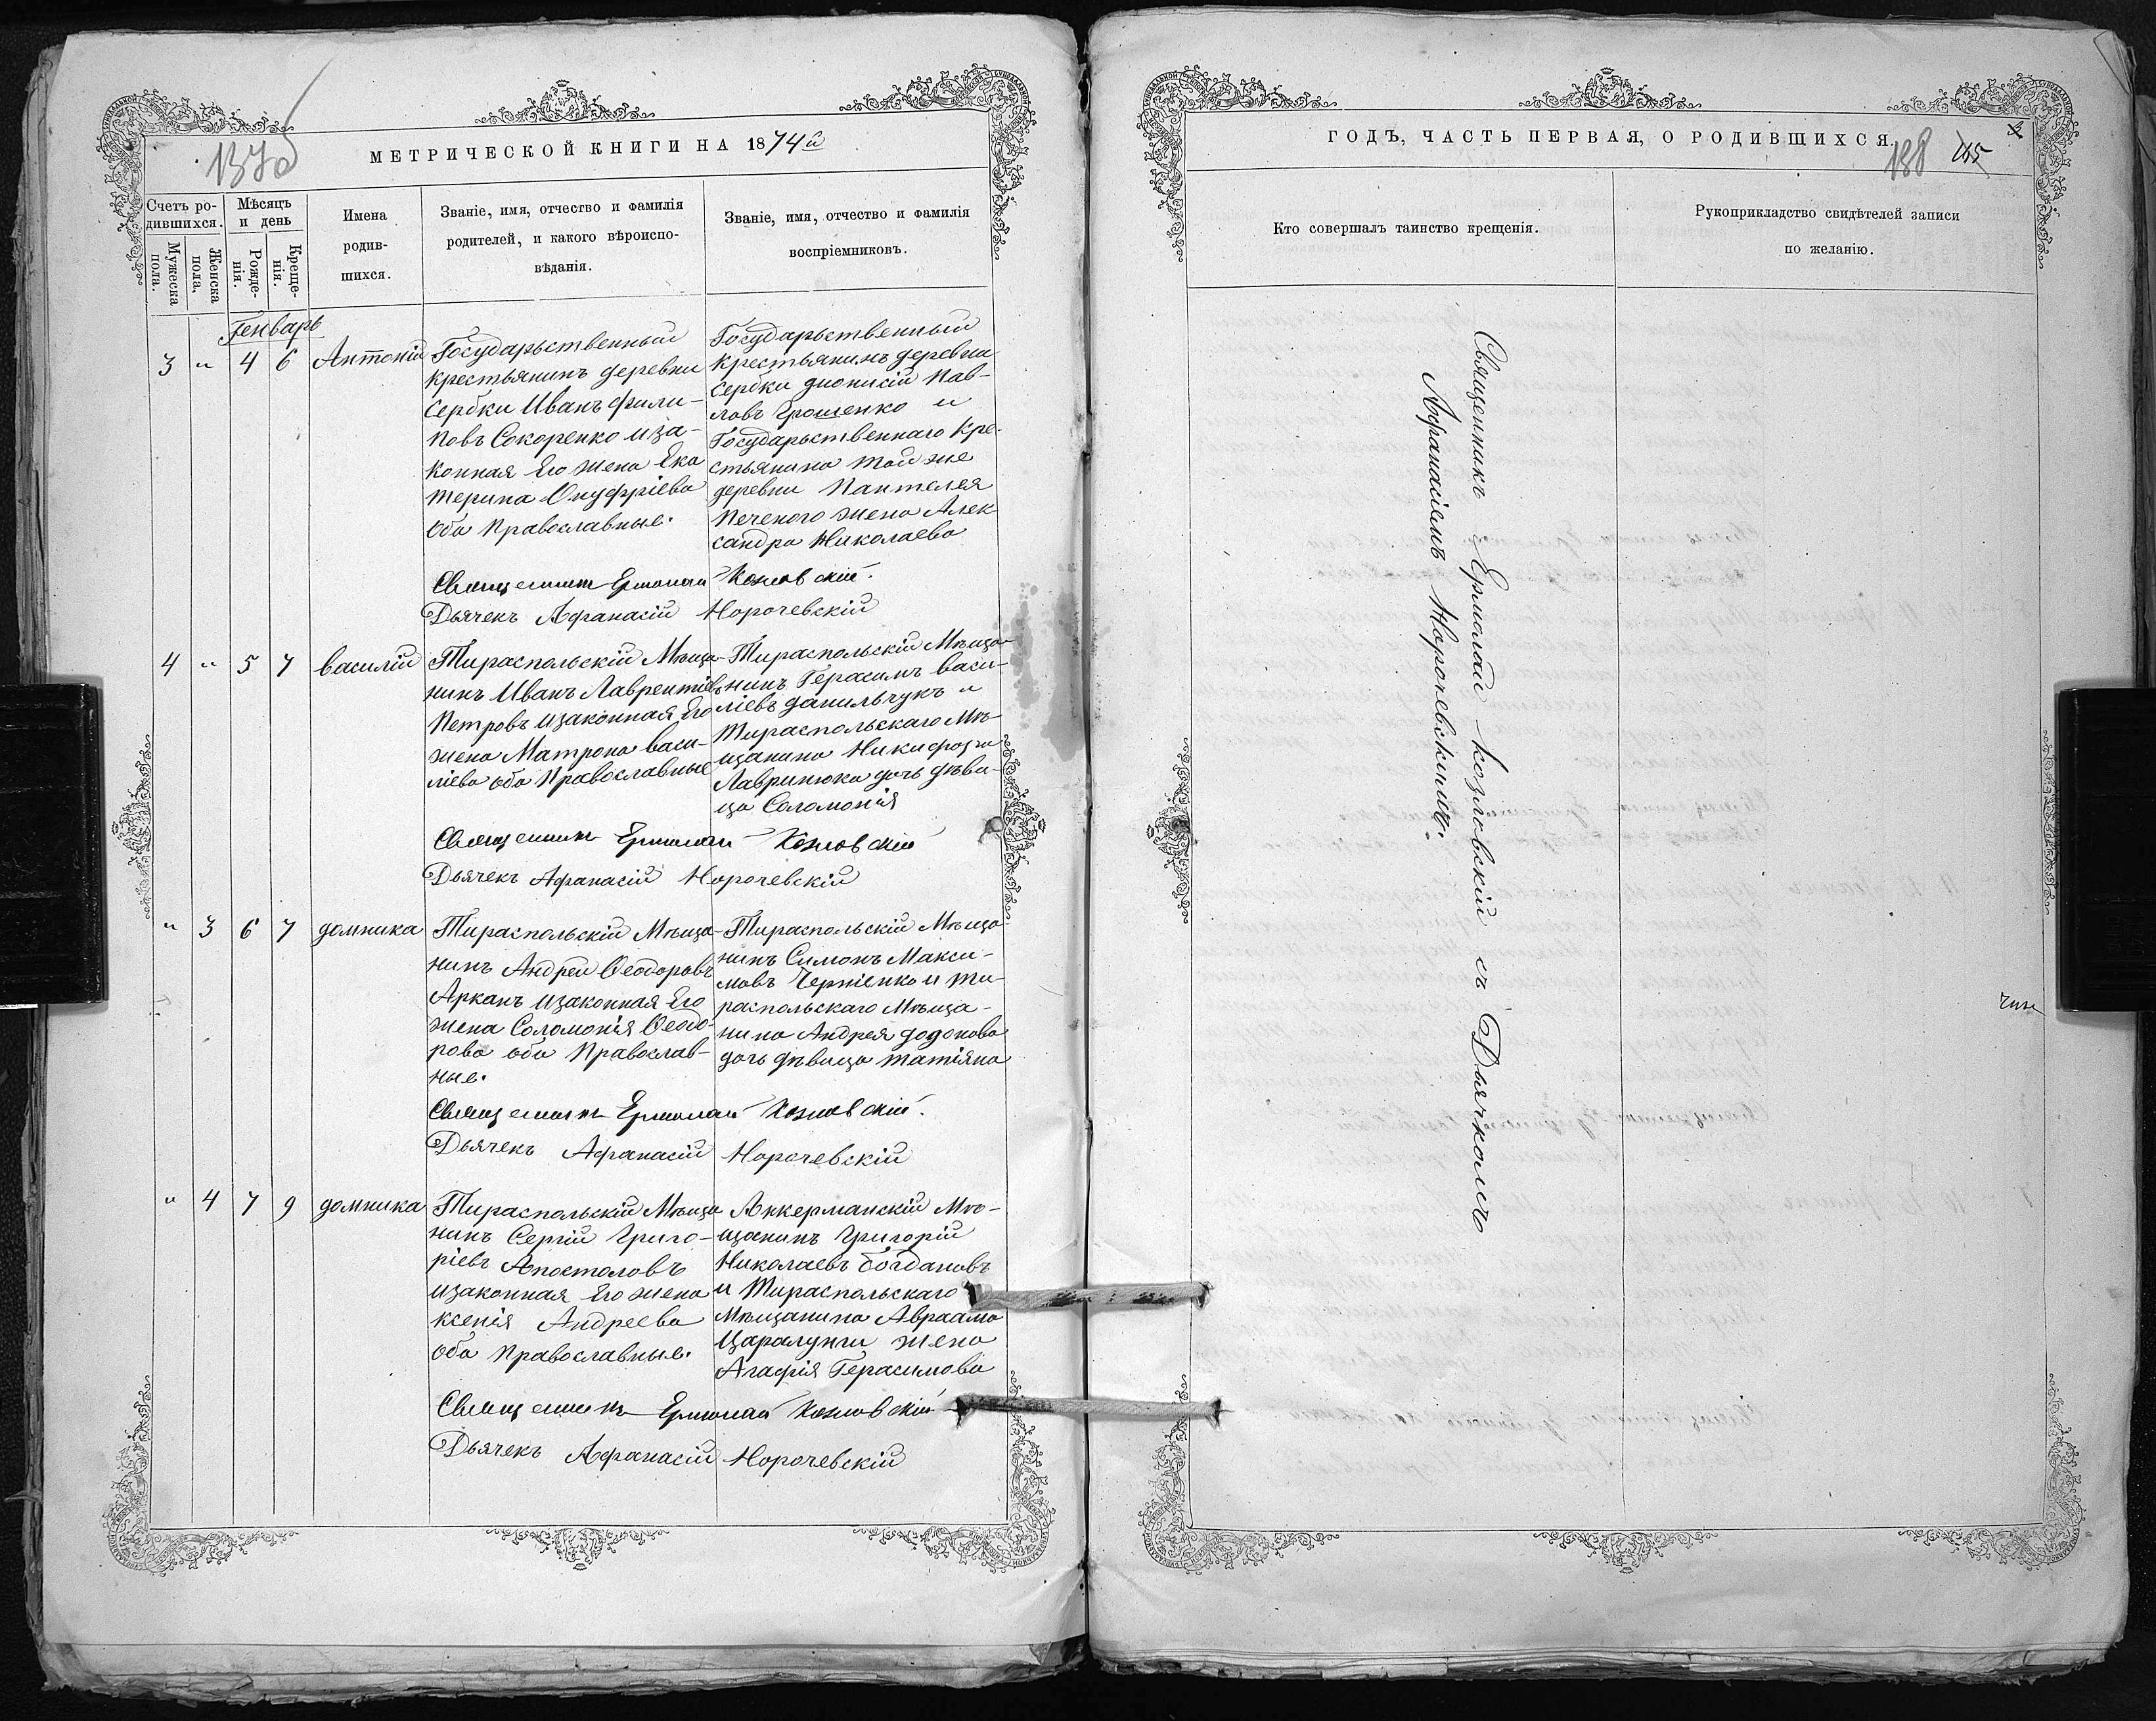 137об
МЕТРИЧЕСКОЙ КНИГИ НА 1874й
Счетъ ро-
дившихся.
Мужеска
пола.
Женска
пола,
Мѣсяцъ
и день
Рожде-
нія.
Креще-
нія.
Имена
родив-
шихся.
Званіе, имя, отчество и фамилія
родителей, и какого вѣроиспо-
вѣданія.
Званіе, имя, отчество и фамилія
воспріемниковъ.
Генварь
3 " 4 6 Антоній
Государьственный
крестьянинъ деревни
Сербки Иванъ Фили-
повъ Сокоренко иза-
конная Его жена Ека
терина Онуфріева
оба Православные.
Государьственный
крестьянинъ деревни
Сербки дионисій Пав-
ловъ Грошенко и
Государьственнаго кре-
стьянина той же
деревни Пантелея
Печеного жена Алек
сандра Николаева
Священникъ Ермолай Козловскій.
Дьячекъ Афанасій Норочевскій
4 " 5 7 василій
Тираспольскій Мѣща-
нинъ Иванъ Лаврентіевъ
Петровъ изаконная Его
жена Матрона васи-
ліева оба Православные
Тираспольскій Мѣща-
нинъ Герасимъ васи-
ліевъ данильчукъ и
Тираспольскаго Мѣ-
щанина Никифора
Лавринюка дочь дѣви-
ца Соломонія
Священникъ Ермолай Козловскій
Дьячекъ Афанасій Норочевскій
" 3 6 7 домника
Тираспольскій Мѣща-
нинъ Андрей Ѳеодоровъ
Арканъ изаконная Его
жена Соломонія Ѳеодо-
рова оба Православ-
ные.
Тираспольскій Мѣща-
нинъ Симонъ Макси-
мовъ Черніенко и ти-
распольскаго Мѣща-
нина Андрея додонова
дочь дѣвица татіяна
Священникъ Ермолай Козловскій.
Дьячекъ Афанасій Норочевскій
" 4 7 9 домника
Тираспольскій Мѣща
нинъ Сергій Григо-
ріевъ Апостоловъ
изаконная Его жена
ксенія Андреева
оба Православные.
Аккерманскій Мѣ-
щанинъ Григорій
Николаевъ богдановъ
и Тираспольскаго
Мѣщанина Авраама
Царалунги жена
Агафія Герасимова
Священникъ Ермолай Козловскій
Дьячекъ Афанасій Норочевскій
ГОДЪ, ЧАСТЬ ПЕРВАЯ, О РОДИВШИХСЯ.
138
Кто совершалъ таинство крещенія.
Рукоприкладство свидѣтелей записи
по желанію.
Священникъ Ермолай Козловскій съ Дьячкомъ
Афанасіемъ Норочевскимъ.